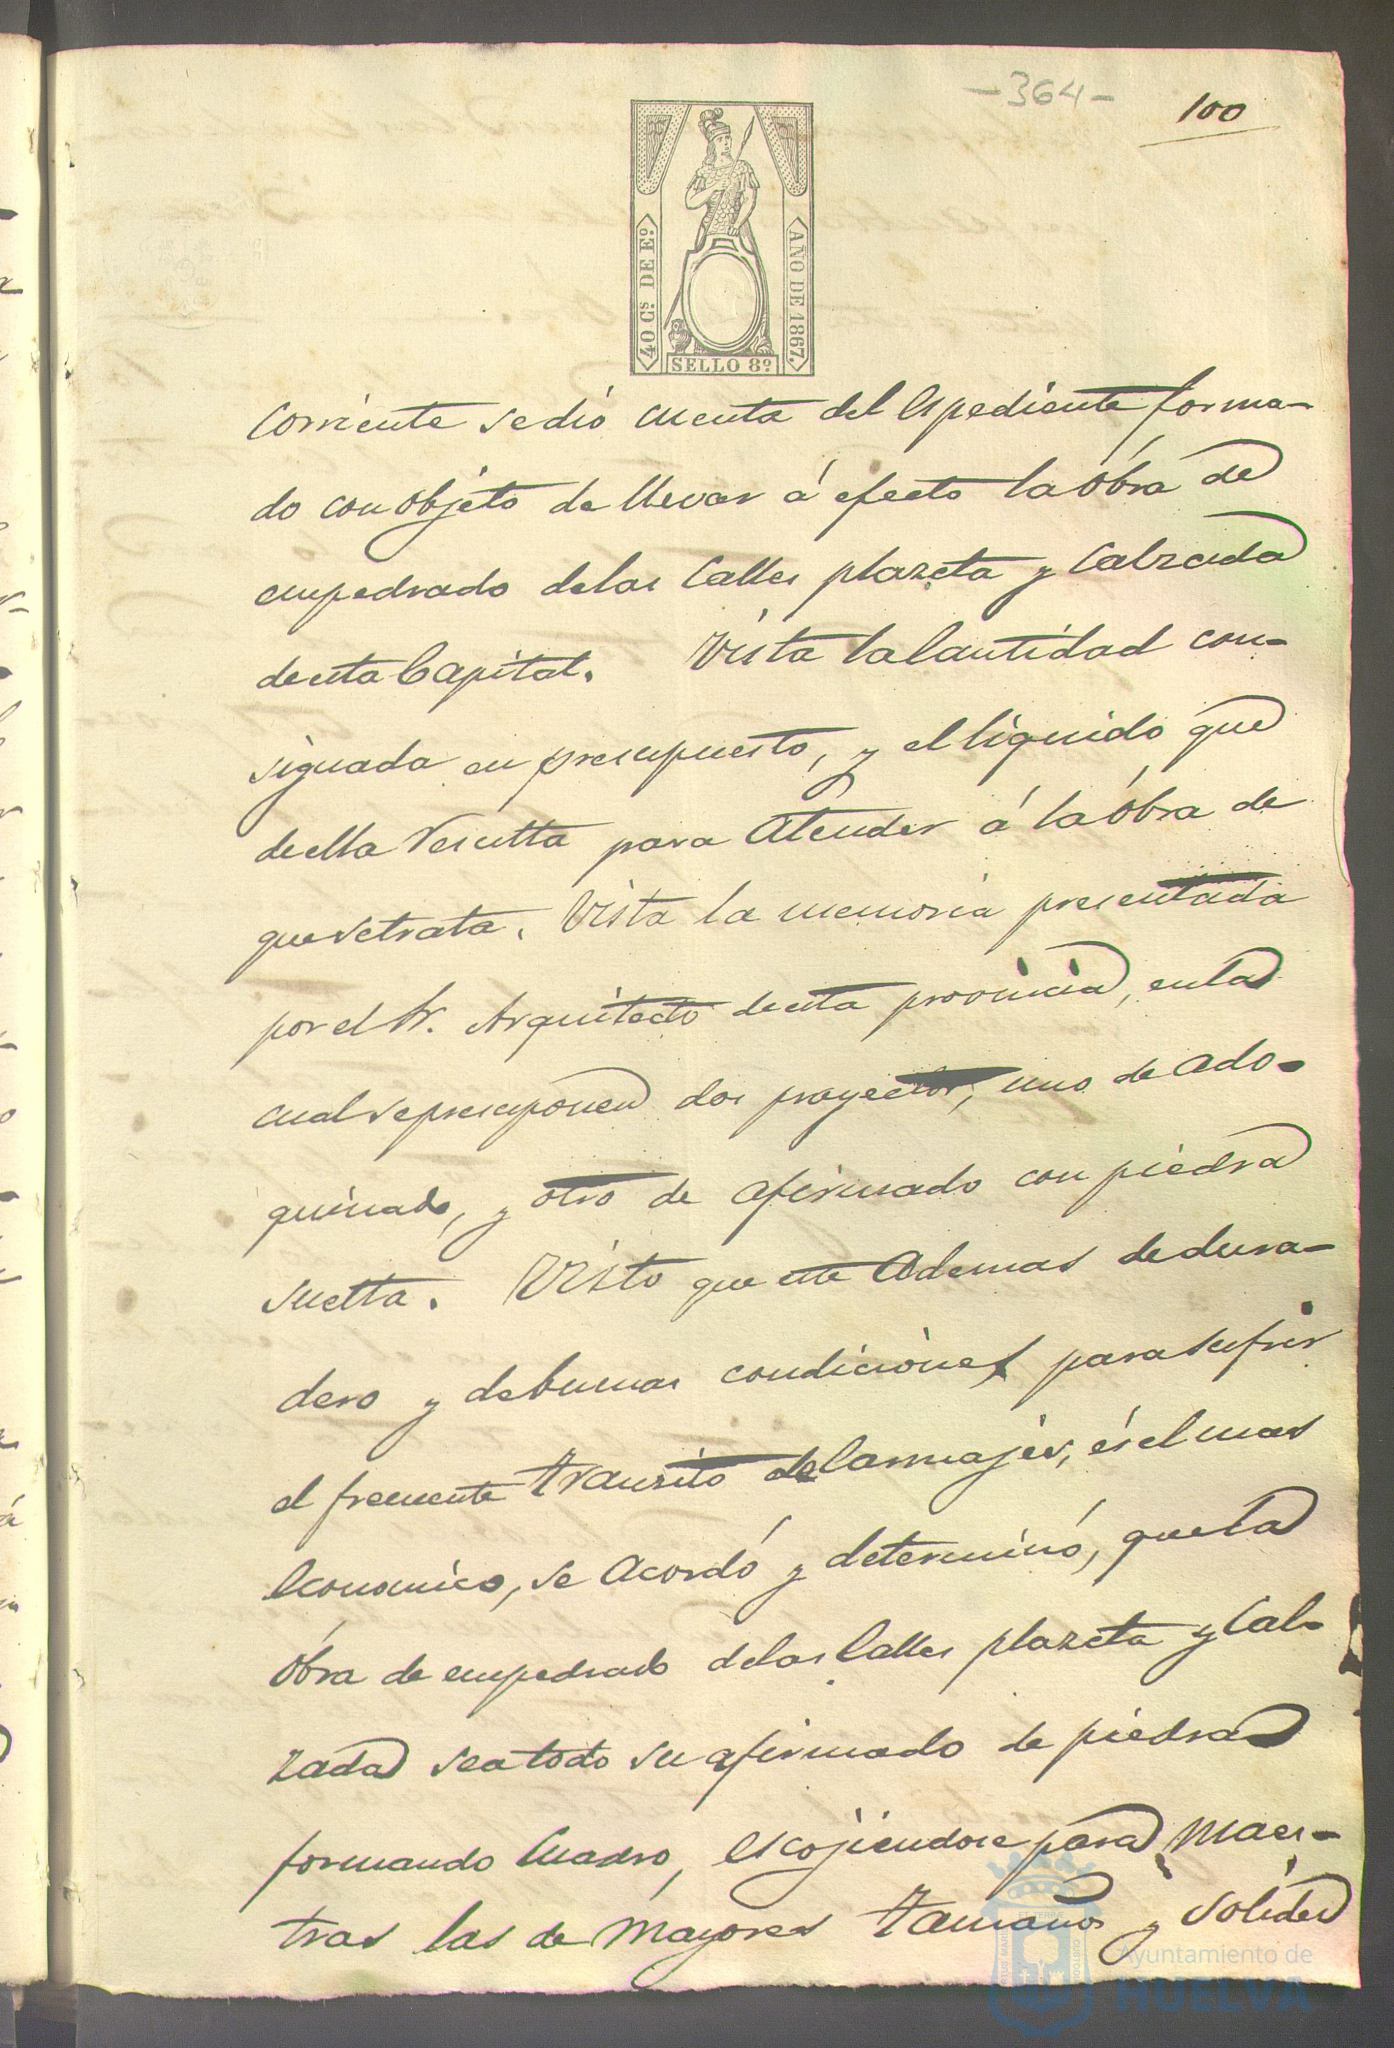 -364-
100
40 Cs. DE Eo.
AÑO DE 1867.
SELLO 8o.
corriente se dió cuenta del espediente forma-
do con objeto de llevar á efecto la obra de
empedrado de las Calles plazeta y Calzada
de esta Capital. Vista la Cantidad con-
signada en presupuesto, y el liquido que
de ella resulta para Atender á la obra de
que se trata. Vista la memoria presentada
por el Sr. Arquitecto de esta provincia, en la
cual se presuponen dos proyectos, uno de ado-
quinado, y otro de afirmado con piedra
suelta. Visto que este Ademas de dura-
dero y de buenas condiciones para sufrir
el frecuente transito de Carruajes, és el mas
economico, se Acordó y determinó, que la
Obra de empedrado de las Calles plazeta y Cal-
zada sea todo su afirmado de piedra
formando Cuadro, escojiendose para Maes-
tras las de mayores tamaños y solides
Ayuntamiento de
HUELVA